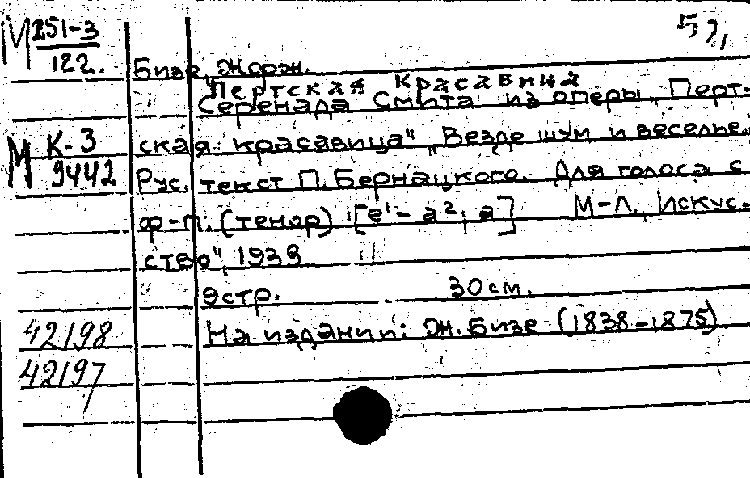 М 251-3
122.
52,
Бизе, Жорж.
Пертская Красавица
Серенада Смита из оперы „Перт-
М К-3
9442
ская красавица" „Везде шум и веселье.
Рус. текст П. Бернацкого. Для голоса с
ф-п. (тенор) [e¹ - a²; a] М-Л, „Искус-
ство", 1938
9стр. 30см.
42198
На издании: Ж. Бизе (1838-1875)
42197